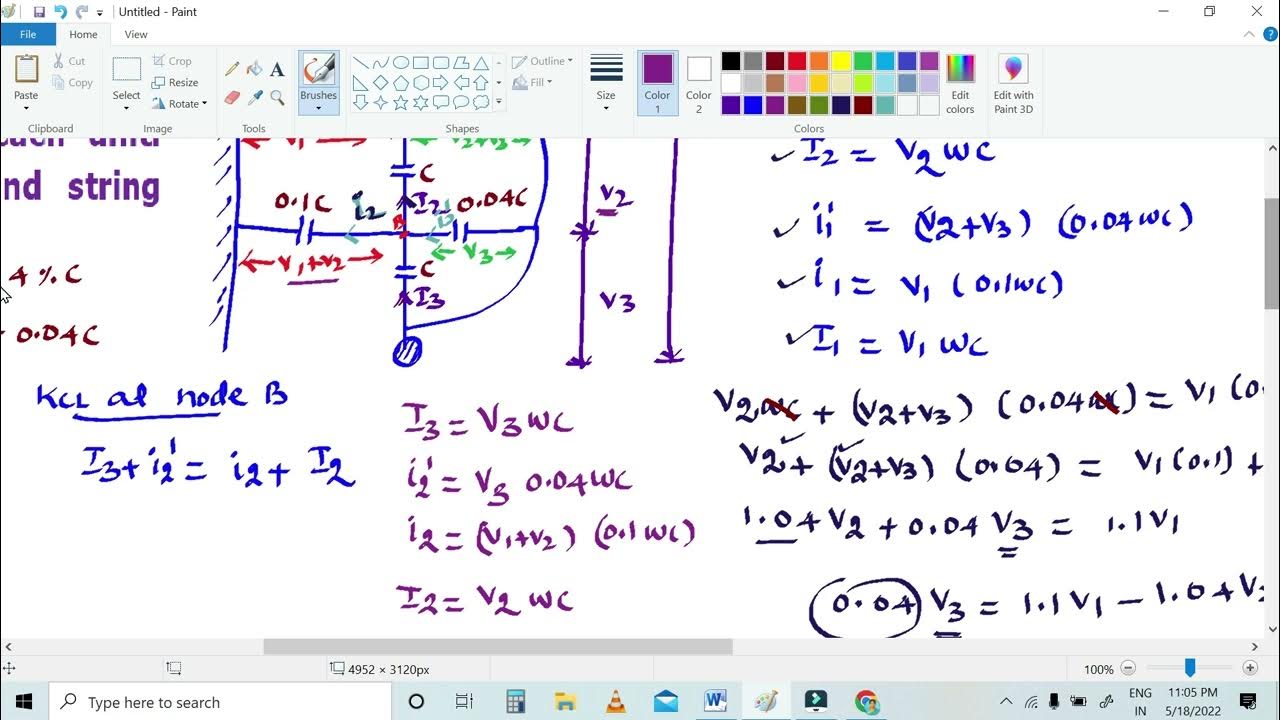 Untitled - Paint
File Home View
Paste Cut Copy
Select Crop Resize Rotate
A
Brushes
Outline Fill
Size
Color 1
Color 2
Edit colors
Edit with Paint 3D
Clipboard Image Tools Shapes Colors
nd string
4 %. C
0.04C
C
0.1C i2 I2 0.04C
B
V1+V2 V3
C
I3
V2
V3
I2 = V2 WC
i1' = (V2+V3) (0.04WC)
i1 = V1 (0.1WC)
I1 = V1 WC
KCL at node B
I3+i2' = i2+ I2
I3 = V3 WC
i2' = V3 0.04WC
i2 = (V1+V2) (0.1WC)
I2 = V2 WC
V2WC + (V2+V3) (0.04WC) = V1 (0.
V2+ (V2+V3) (0.04) = V1(0.1) +
1.04V2 + 0.04 V3 = 1.1V1
0.04 V3 = 1.1V1 - 1.04V2
4952 × 3120px
100%
Type here to search
ENG IN
11:05 PM
5/18/2022